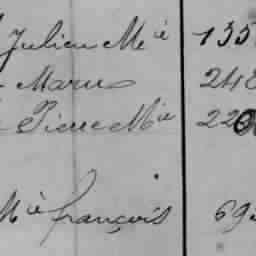 Julien M ie 135
Marie 248
Pierre M ie 220
M ie françois 693